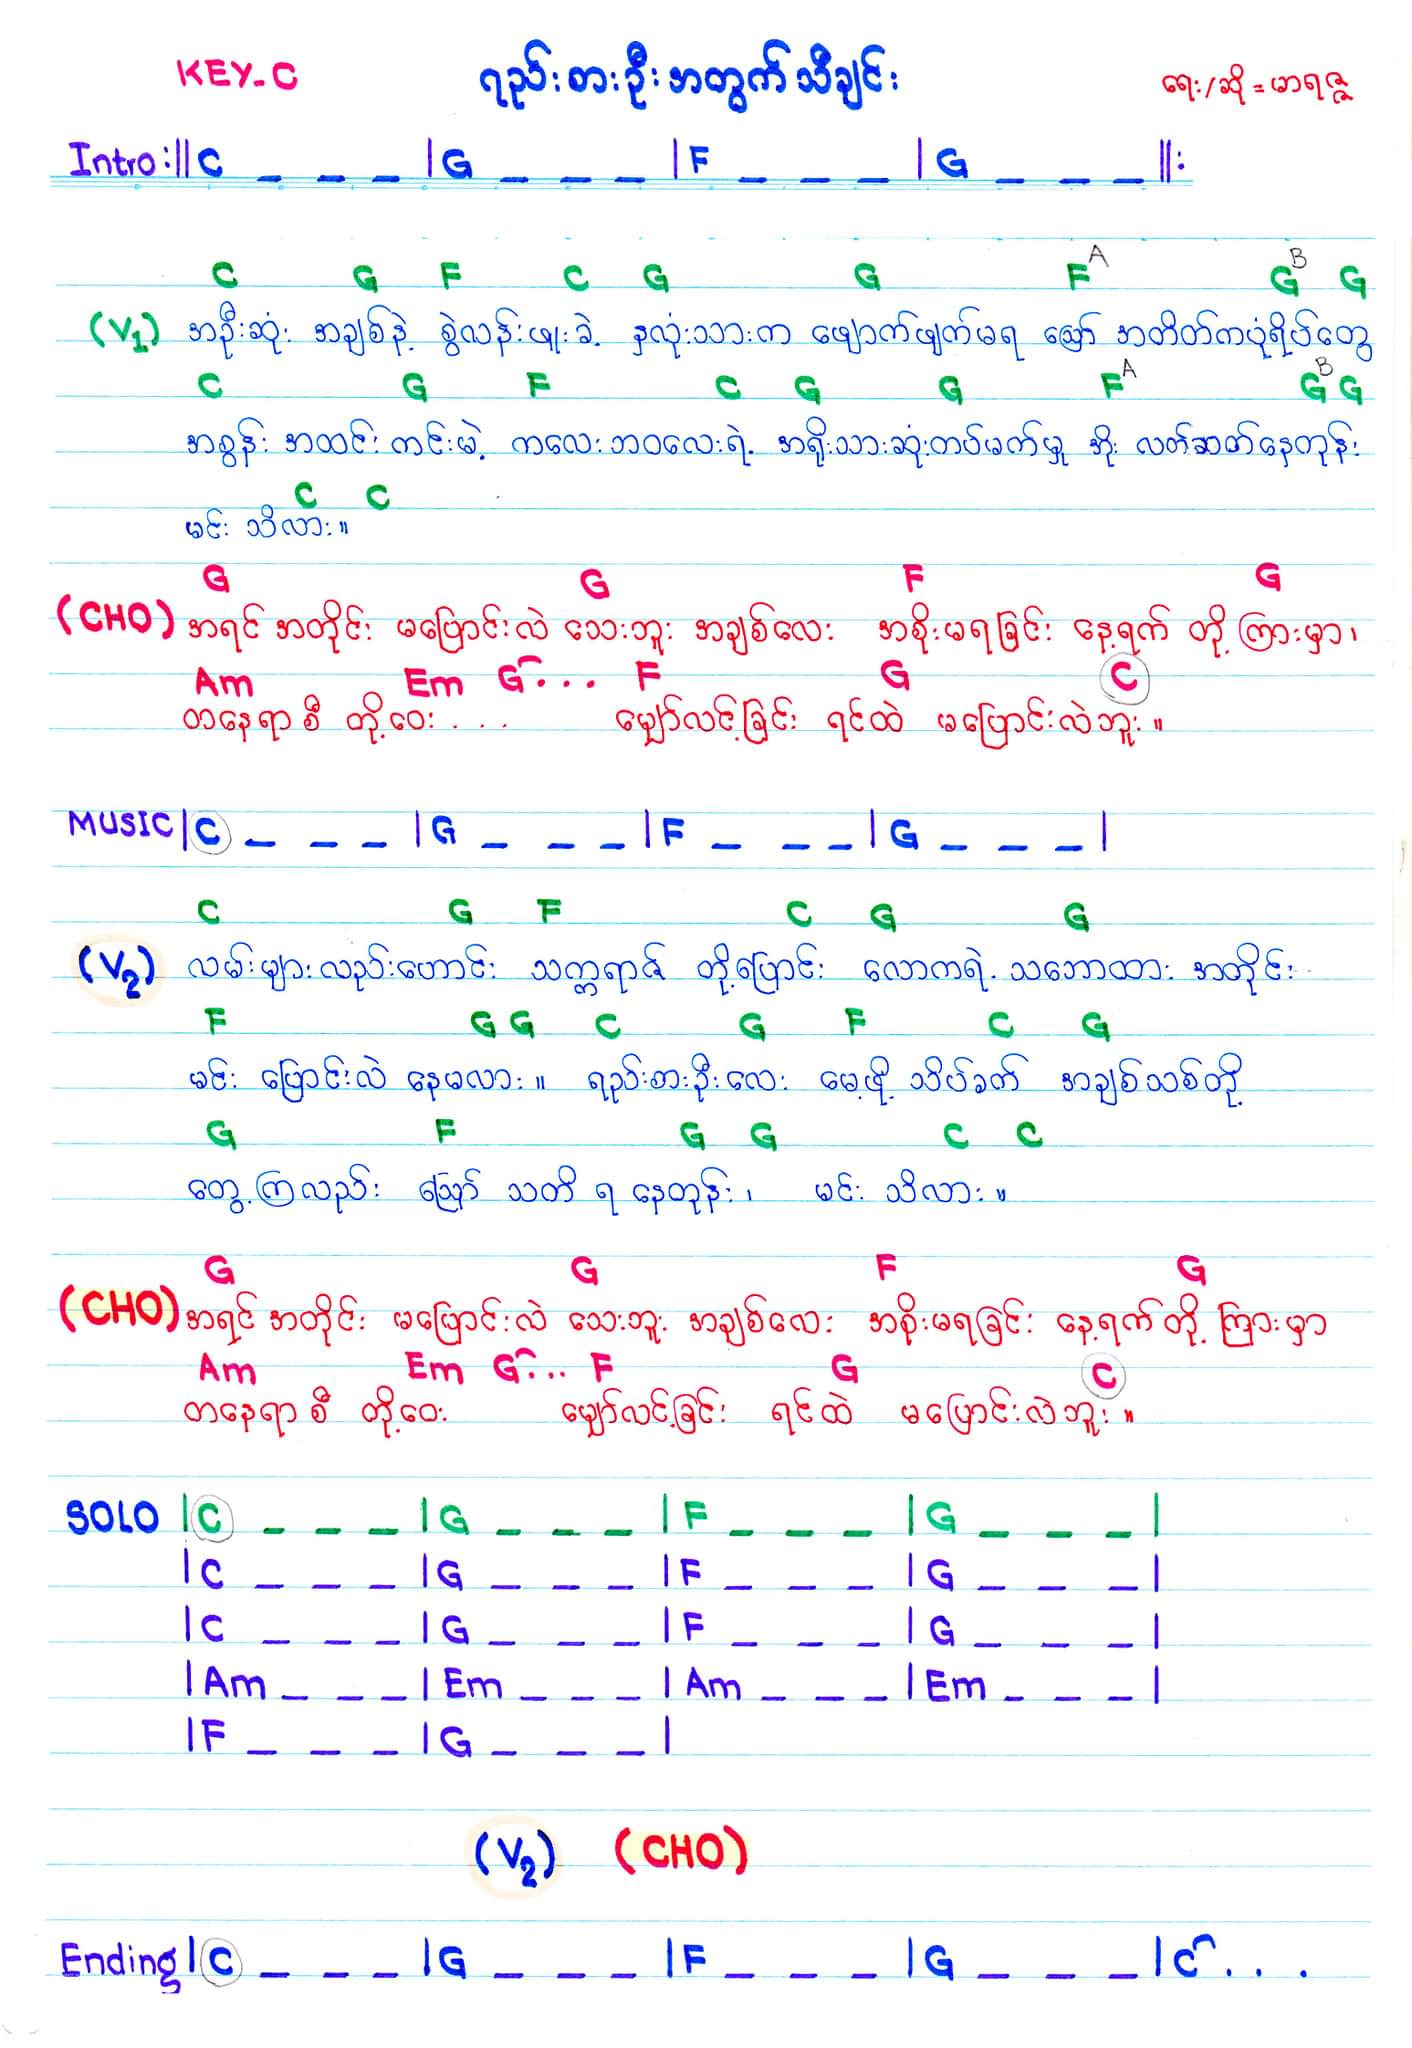 KEY-C ရည်းစားဦးအတွက်သီချင်း ရေး/ဆို = မာရဇ္ဇ
Intro :|| C _ _ _ | G _ _ _ | F _ _ _ | G _ _ _ ||:
C G F C G G F A G B G
(V1) အဦးဆုံး အချစ်နဲ့ စွဲလန်းဖူးခဲ့ နှလုံးသားက ဖျောက်ဖျက်မရ ဪ အတိတ်ကပုံရိပ်တွေ
C G F C G G F A G B G
အစွန်း အထင်း ကင်းမဲ့ ကလေးဘဝလေးရဲ့ အရိုးသားဆုံးကပ်မက်မှု အိုး လတ်ဆတ်နေတုန်း
C C
မင်း သိလား။
G G F G
(CHO) အရင် အတိုင်း မပြောင်းလဲ သေးဘူး အချစ်လေး အစိုးမရခြင်း နေ့ရက် တို့ ကြားမှာ၊
Am Em G... F G C
တနေရာစီ တို့ဝေး .... မျှော်လင့်ခြင်း ရင်ထဲ မပြောင်းလဲဘူး။
MUSIC | C _ _ _ | G _ _ _ | F _ _ _ | G _ _ _ |
C G F C G G
(V2) လမ်းများလည်းဟောင်း သက္ကရာဇ် တို့ပြောင်း လောကရဲ့ သဘောထား အတိုင်း
F G G C G F C G
မင်း ပြောင်းလဲ နေမလား။ ရည်းစားဦးလေး မေ့ဖို့ သိပ်ခက် အချစ်သစ်တို့
G F G G C C
တွေ့ကြလည်း ဪ သတိ ရ နေတုန်း၊ မင်း သိလား။
G G F G
(CHO) အရင် အတိုင်း မပြောင်းလဲ သေးဘူး အချစ်လေး အစိုးမရခြင်း နေ့ရက်တို့ ကြားမှာ
Am Em G... F G C
တနေရာစီ တို့ဝေး မျှော်လင့်ခြင်း ရင်ထဲ မပြောင်းလဲဘူး။
SOLO | C _ _ _ | G _ _ _ | F _ _ _ | G _ _ _ |
| C _ _ _ | G _ _ _ | F _ _ _ | G _ _ _ |
| C _ _ _ | G _ _ _ | F _ _ _ | G _ _ _ |
| Am _ _ _ | Em _ _ _ | Am _ _ _ | Em _ _ _ |
| F _ _ _ | G _ _ _ |
(V2) (CHO)
Ending | C _ _ _ | G _ _ _ | F _ _ _ | G _ _ _ | C...